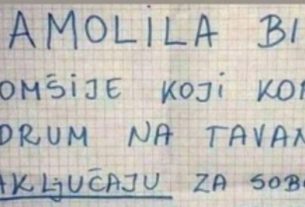 AMOLILA BI
OMŠIJE KOJI KO
DRUM NA TAVAN
AKLJUČAJU ZA SOBO